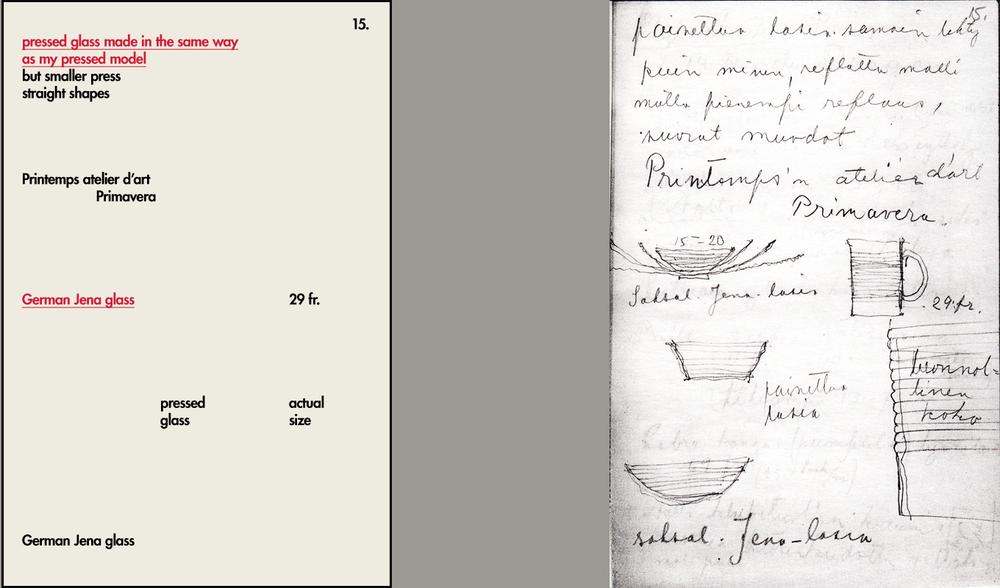 15.
pressed glass made in the same way
as my pressed model
but smaller press
straight shapes
Printemps atelier d'art
Primavera
German Jena glass 29 fr.
pressed actual
glass size
German Jena glass
15.
painettua lasia samoin tehty
kuin minun, reflattu malli
mutta pienempi reflaus,
suorat muodot
Printemps'n atelier d'art
Primavera.
15-20
Saksal. Jena-lasia
29 fr.
painettua
lasia
luonnol-
linen
koko
saksal. Jena-lasia